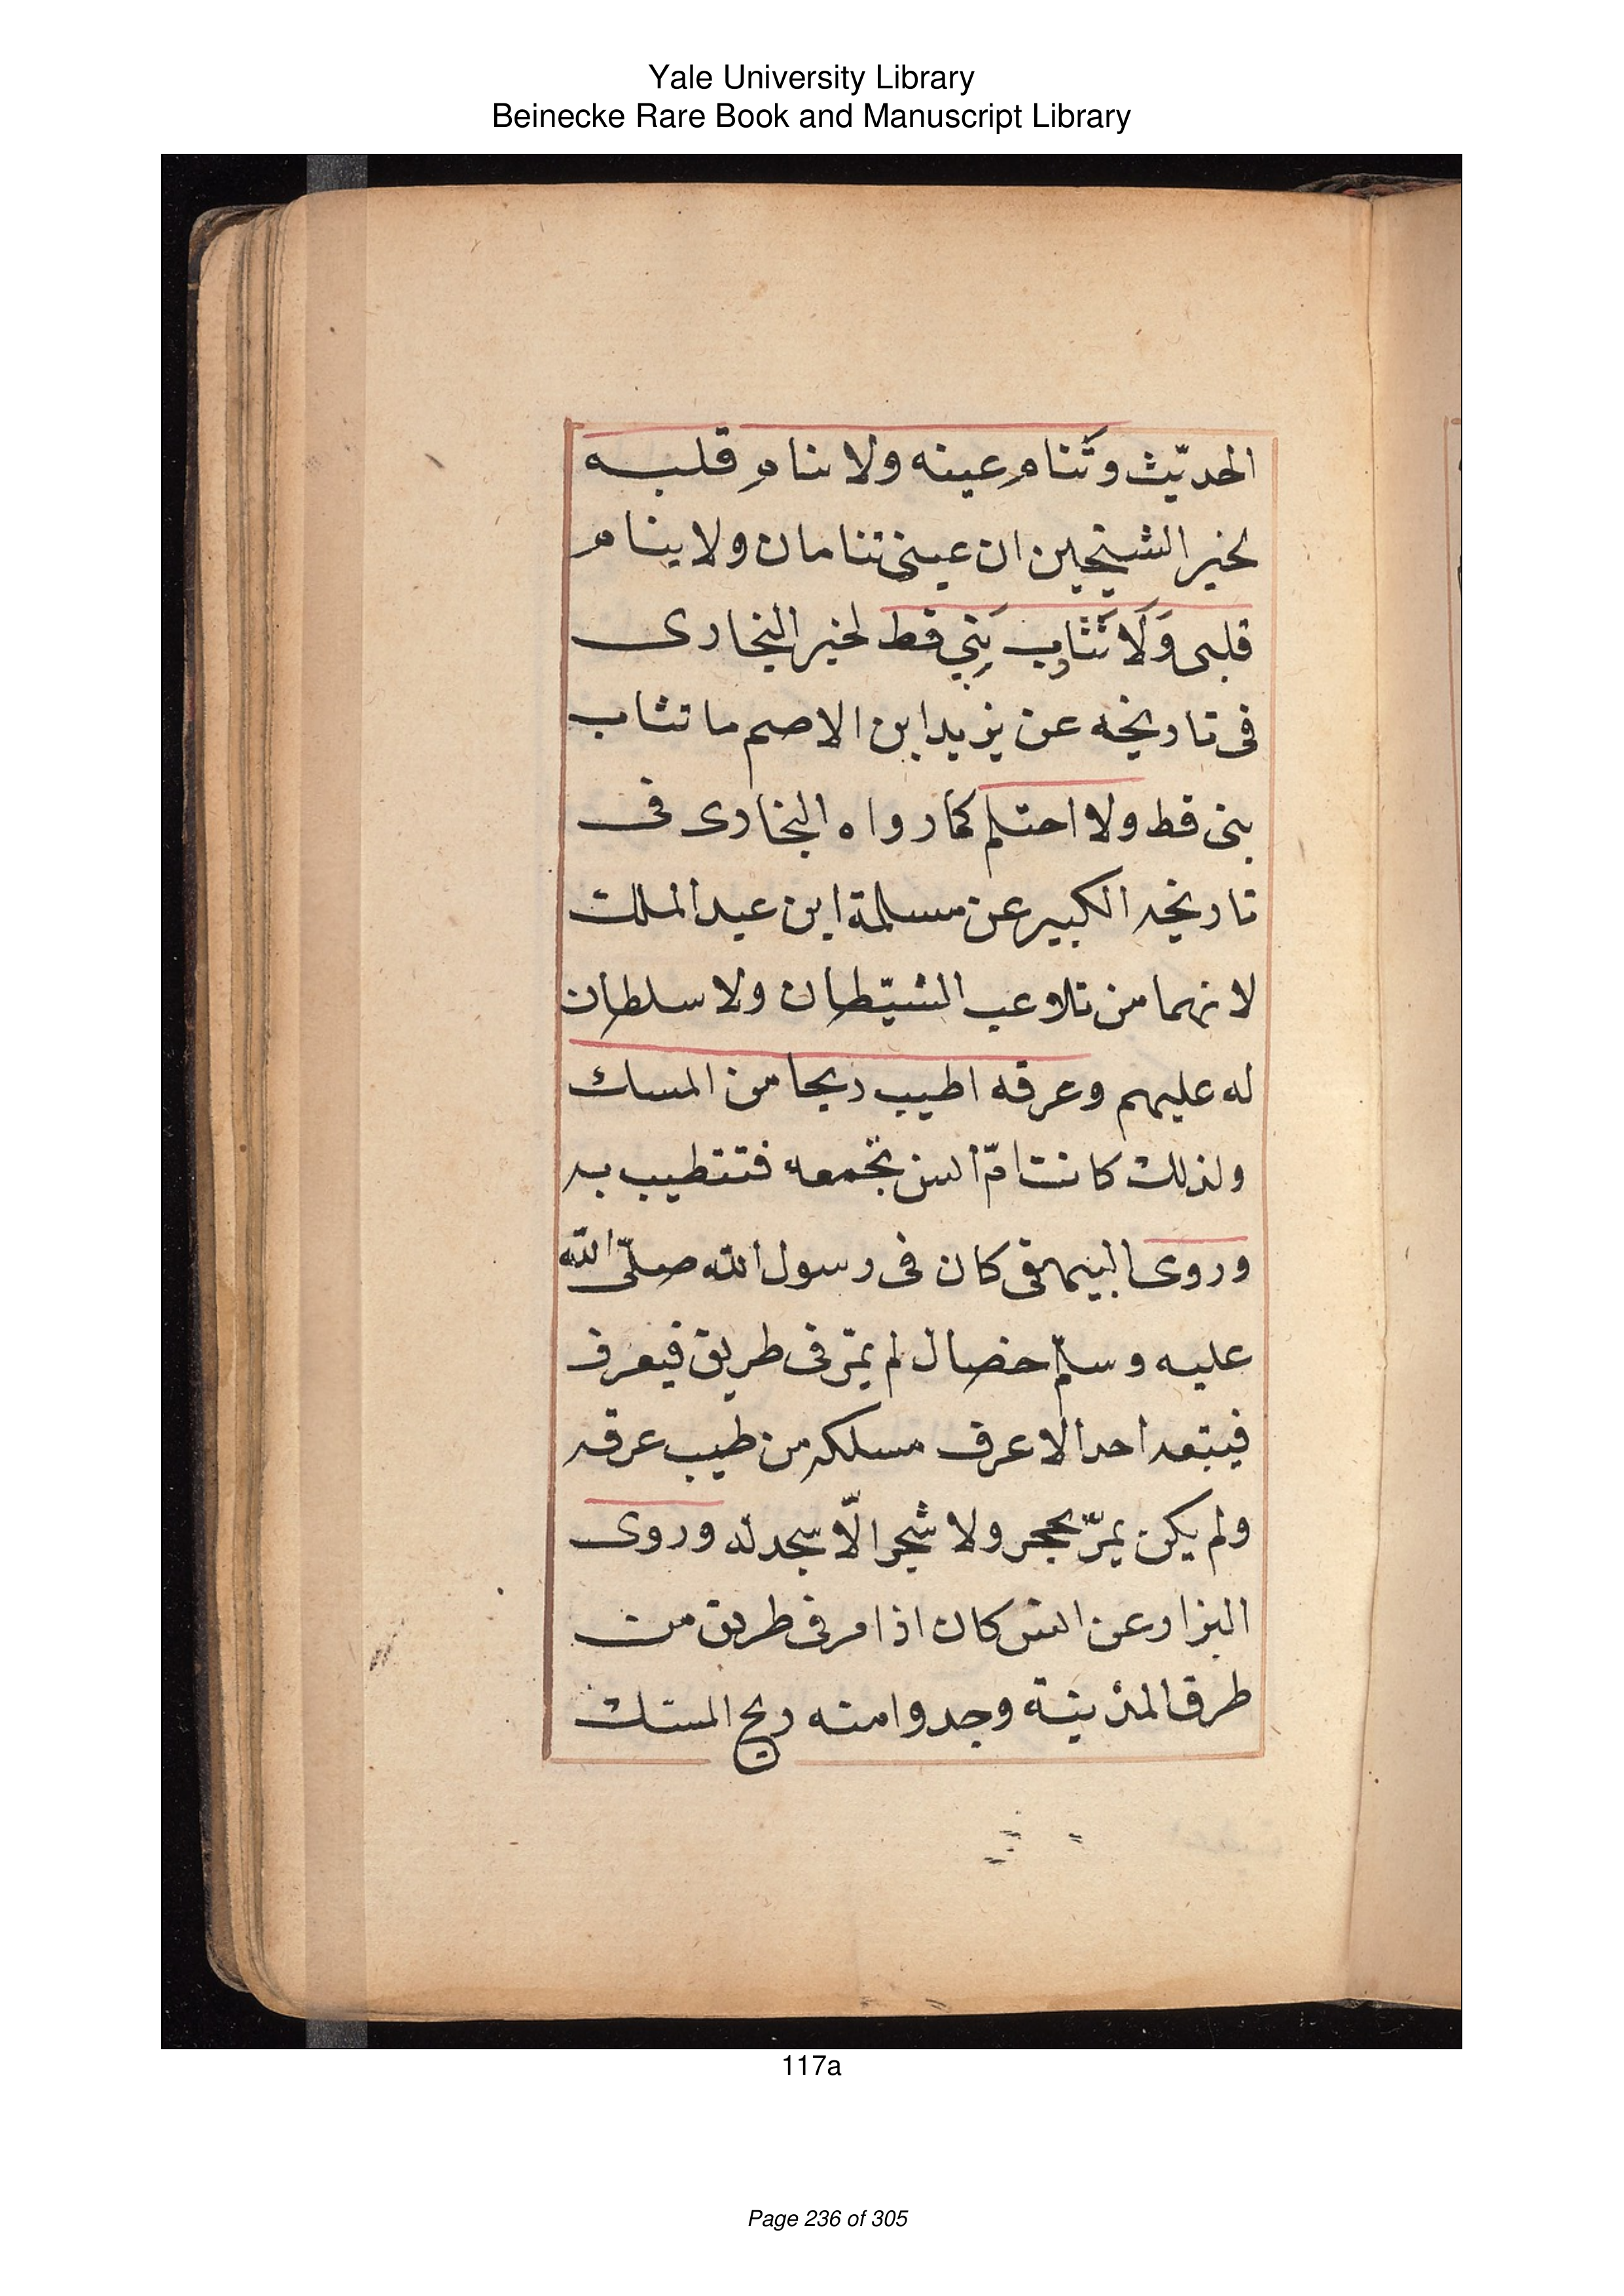 Yale University Library
Beinecke Rare Book and Manuscript Library
الحديّث وتَنام عينه ولا ينام قلبه
لخبر الشيخين ان عينى تنامان ولا ينام
قلبى وَلَا تَثَاوب نَبِي قط لخبر البخارى
فى تاريخه عن يزيد ابن الاصم ما تثاب
نبى قط ولا احتلم كما رواه البخارى فى
تاريخه الكبير عن مسلمة ابن عبد الملك
لانهما من تلاعب الشيّطان ولا سلطان
له عليهم وعرقه اطيب ريحا من المسك
ولذلك كانت امّ انس تجمعه فتتطيب به
وروى البيهقى كان فى رسول الله صلّى الله
عليه وسلّم خصال لم يمرّ فى طريق فيعرف
فيتبعه احد الا عرف مسلكه من طيب عرقه
ولم يكن يمرّ بحجر ولا شجر الّا سجد له وروى
البزار عن انس كان اذا مر فى طريق من
طرق المدينة وجدوا منه ريح المسك
117a
Page 236 of 305